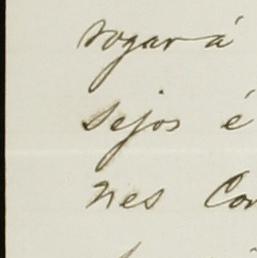 rogar á
sejos é
nes Con